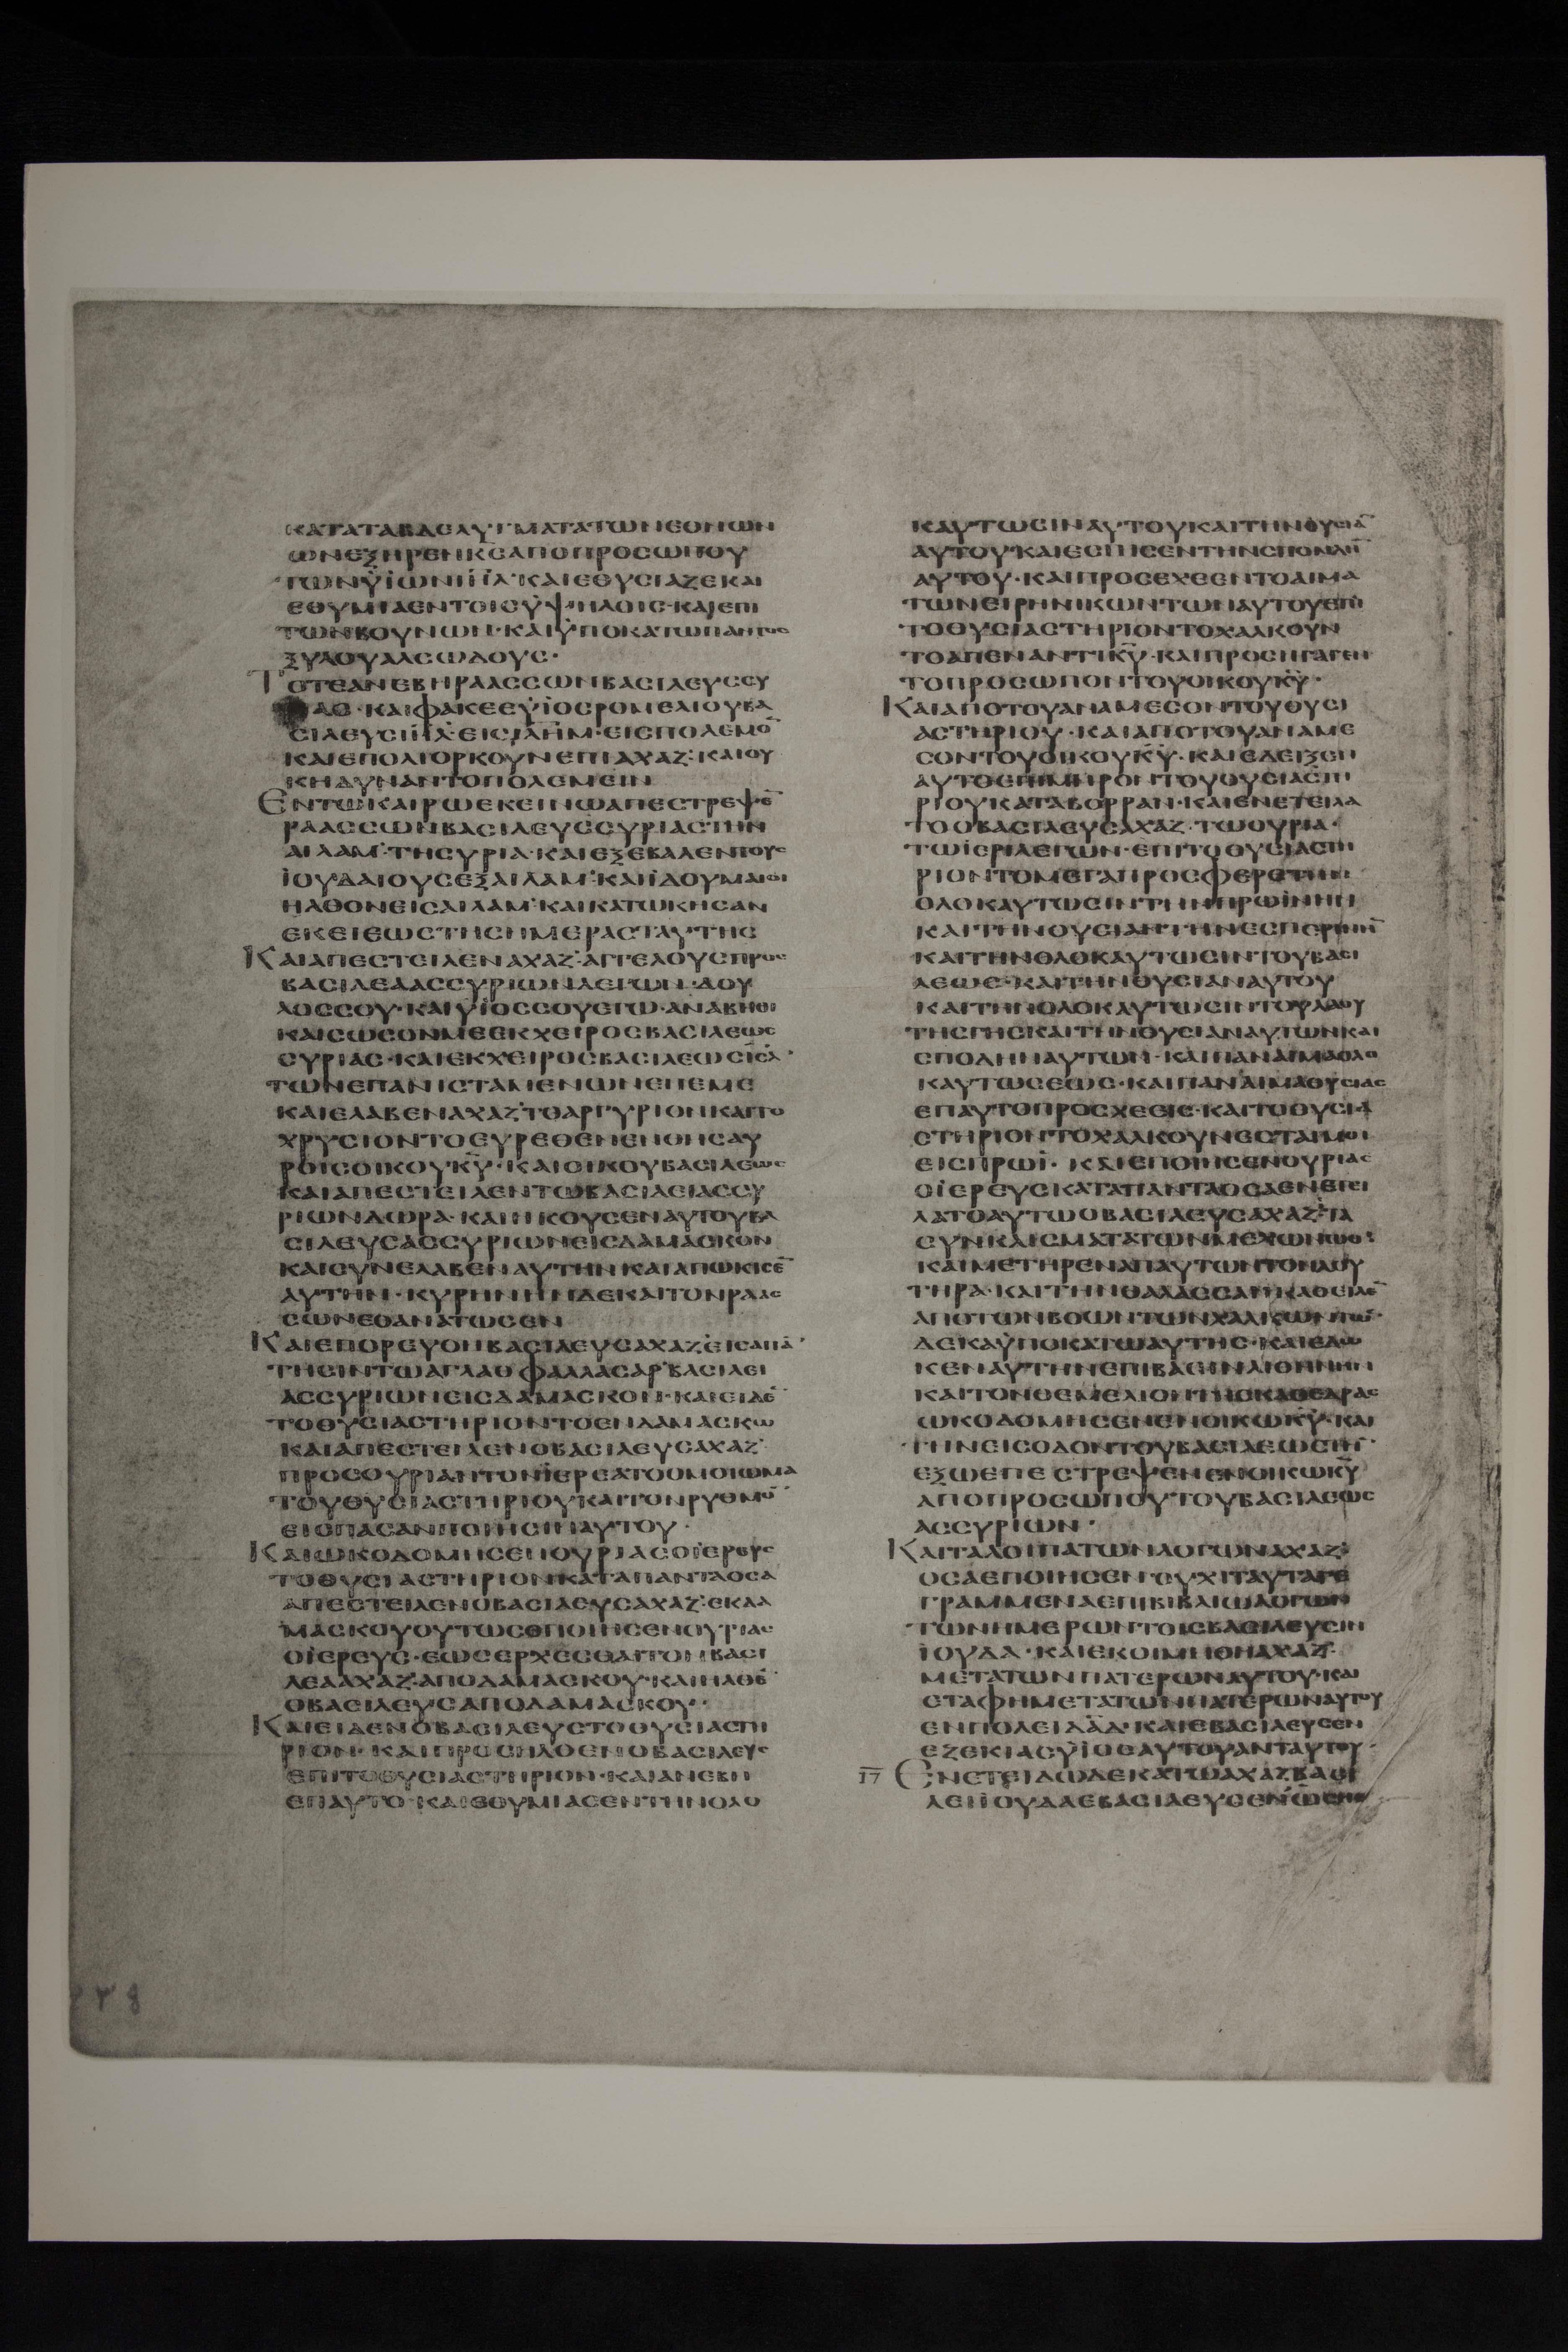 ΚΑΤΑΤΑΒΔΕΛΥΓΜΑΤΑΤΩΝΕΘΝΩΝ
ΩΝΕΞΗΡΕΝΚ̅Σ̅ΑΠΟΠΡΟΣΩΠΟΥ
ΤΩΝΫΪΩΝΙ̅Η̅Λ̅·ΚΑΙΕΘΥΣΙΑΖΕΚΑΙ
ΕΘΥΜΙΑΕΝΤΟΙΣΫΨΗΛΟΙΣ·ΚΑΙΕΠΙ
ΤΩΝΒΟΥΝΩΝ·ΚΑΙΫΠΟΚΑΤΩΠΑΝΤΟΣ
ΞΥΛΟΥΑΛΣΩΔΟΥΣ·
ΤΟΤΕΑΝΕΒΗΡΑΑΣΣΩΝΒΑΣΙΛΕΥΣΣΥ
ΑΣ·ΚΑΙΦΑΚΕΕΫΪΟΣΡΟΜΕΛΙΟΥΒΑ
ΣΙΛΕΥΣΙ̅Η̅Λ̅·ΕΙΣΙ̅Λ̅Η̅Μ̅·ΕΙΣΠΟΛΕΜΟ̅
ΚΑΙΕΠΟΛΙΟΡΚΟΥΝΕΠΙΑΧΑΖ·ΚΑΙΟΥ
ΚΗΔΥΝΑΝΤΟΠΟΛΕΜΕΙΝ
ΕΝΤΩΚΑΙΡΩΕΚΕΙΝΩΑΠΕΣΤΡΕΨΕ̅
ΡΑΑΣΣΩΝΒΑΣΙΛΕΥΣΣΥΡΙΑΣΤΗΝ
ΑΙΛΑΜ·ΤΗΣΥΡΙΑ·ΚΑΙΕΞΕΒΑΛΕΝΤΟΥΣ
ΪΟΥΔΑΙΟΥΣΕΞΑΙΛΑΜ·ΚΑΙΪΔΟΥΜΑΙΟΙ
ΗΛΘΟΝΕΙΣΑΙΛΑΜ·ΚΑΙΚΑΤΩΚΗΣΑΝ
ΕΚΕΙΕΩΣΤΗΣΗΜΕΡΑΣΤΑΥΤΗΣ
ΚΑΙΑΠΕΣΤΕΙΛΕΝΑΧΑΖ·ΑΓΓΕΛΟΥΣΠΡΟΣ
ΒΑΣΙΛΕΑΑΣΣΥΡΙΩΝΛΕΓΩΝ·ΔΟΥ
ΛΟΣΣΟΥ·ΚΑΙΫΪΟΣΣΟΥΕΓΩ·ΑΝΑΒΗΘΙ
ΚΑΙΣΩΣΟΝΜΕΕΚΧΕΙΡΟΣΒΑΣΙΛΕΩΣ
ΣΥΡΙΑΣ·ΚΑΙΕΚΧΕΙΡΟΣΒΑΣΙΛΕΩΣΙ̅Σ̅Λ̅·
ΤΩΝΕΠΑΝΙΣΤΑΜΕΝΩΝΕΠΕΜΕ
ΚΑΙΕΛΑΒΕΝΑΧΑΖ·ΤΟΑΡΓΥΡΙΟΝΚΑΙΤΟ
ΧΡΥΣΙΟΝΤΟΕΥΡΕΘΕΝΕΝΘΗΣΑΥ
ΡΟΙΣΟΙΚΟΥΚ̅Υ̅·ΚΑΙΟΙΚΟΥΒΑΣΙΛΕΩΣ
ΚΑΙΑΠΕΣΤΕΙΛΕΝΤΩΒΑΣΙΛΕΙΑΣΣΥ
ΡΙΩΝΔΩΡΑ·ΚΑΙΗΚΟΥΣΕΝΑΥΤΟΥΒΑ
ΣΙΛΕΥΣΑΣΣΥΡΙΩΝΕΙΣΔΑΜΑΣΚΟΝ
ΚΑΙΣΥΝΕΛΑΒΕΝΑΥΤΗΝΚΑΙΑΠΩΚΙΣΕ̅
ΑΥΤΗΝ·ΚΥΡΗΝΗΝΔΕΚΑΙΤΟΝΡΑΑΣ
ΣΩΝΕΘΑΝΑΤΩΣΕΝ
ΚΑΙΕΠΟΡΕΥΘΗΒΑΣΙΛΕΥΣΑΧΑΖ·ΕΙΣΑΠΑ̅·
ΤΗΣΙΝΤΩΑΓΛΑΘΦΑΛΛΑΣΑΡ·ΒΑΣΙΛΕΙ
ΑΣΣΥΡΙΩΝΕΙΣΔΑΜΑΣΚΟΝ·ΚΑΙΕΙΔΕ̅
ΤΟΘΥΣΙΑΣΤΗΡΙΟΝΤΟΕΝΔΑΜΑΣΚΩ
ΚΑΙΑΠΕΣΤΕΙΛΕΝΟΒΑΣΙΛΕΥΣΑΧΑΖ·
ΠΡΟΣΟΥΡΙΑΝΤΟΝΪΕΡΕΑΤΟΟΜΟΙΩΜΑ
ΤΟΥΘΥΣΙΑΣΤΗΡΙΟΥΚΑΙΤΟΝΡΥΘΜΟ̅
ΕΙΣΠΑΣΑΝΠΟΙΗΣΙΝΑΥΤΟΥ·
ΚΑΙΩΚΟΔΟΜΗΣΕΝΟΥΡΙΑΣΟΪΕΡΕΥΣ
ΤΟΘΥΣΙΑΣΤΗΡΙΟΝΚΑΤΑΠΑΝΤΑΟΣΑ
ΑΠΕΣΤΕΙΛΕΝΟΒΑΣΙΛΕΥΣΑΧΑΖ·ΕΚΔΑ
ΜΑΣΚΟΥΟΥΤΩΣΕΠΟΙΗΣΕΝΟΥΡΙΑΣ
ΟΪΕΡΕΥΣ·ΕΩΣΕΡΧΕΣΘΑΙΤΟΝΒΑΣΙ
ΛΕΑΑΧΑΖ·ΑΠΟΔΑΜΑΣΚΟΥ·ΚΑΙΗΛΘΕ̅
ΟΒΑΣΙΛΕΥΣΑΠΟΔΑΜΑΣΚΟΥ·
ΚΑΙΕΙΔΕΝΟΒΑΣΙΛΕΥΣΤΟΘΥΣΙΑΣΤΗ
ΡΙΟΝ·ΚΑΙΠΡΟΣΗΛΘΕΝΟΒΑΣΙΛΕΥΣ
ΕΠΙΤΟΘΥΣΙΑΣΤΗΡΙΟΝ·ΚΑΙΑΝΕΒΗ
ΕΠΑΥΤΟ·ΚΑΙΕΘΥΜΙΑΣΕΝΤΗΝΟΛΟ
ΚΑΥΤΩΣΙΝΑΥΤΟΥΚΑΙΤΗΝΘΥΣΙΑ̅
ΑΥΤΟΥ·ΚΑΙΕΣΠΙΣΕΝΤΗΝΣΠΟΝΔΗ̅
ΑΥΤΟΥ·ΚΑΙΠΡΟΣΕΧΕΕΝΤΟΑΙΜΑ
ΤΩΝΕΙΡΗΝΙΚΩΝΤΩΝΑΥΤΟΥΕΠΙ
ΤΟΘΥΣΙΑΣΤΗΡΙΟΝΤΟΧΑΛΚΟΥΝ
ΤΟΑΠΕΝΑΝΤΙΚ̅Υ̅·ΚΑΙΠΡΟΣΗΓΑΓΕΝ
ΤΟΠΡΟΣΩΠΟΝΤΟΥΟΙΚΟΥΚ̅Υ̅·
ΚΑΙΑΠΟΤΟΥΑΝΑΜΕΣΟΝΤΟΥΘΥΣΙ
ΑΣΤΗΡΙΟΥ·ΚΑΙΑΠΟΤΟΥΑΝΑΜΕ
ΣΟΝΤΟΥΟΙΚΟΥΚ̅Υ̅·ΚΑΙΕΔΕΙΞΕΝ
ΑΥΤΟΕΠΙΜΗΡΟΝΤΟΥΘΥΣΙΑΣΤΗ
ΡΙΟΥΚΑΤΑΒΟΡΡΑΝ·ΚΑΙΕΝΕΤΕΙΛΑ
ΤΟΟΒΑΣΙΛΕΥΣΑΧΑΖ·ΤΩΟΥΡΙΑ·
ΤΩΪΕΡΙΛΕΓΩΝ·ΕΠΙΤΟΘΥΣΙΑΣΤΗ
ΡΙΟΝΤΟΜΕΓΑΠΡΟΣΦΕΡΕΤΗΝ
ΟΛΟΚΑΥΤΩΣΙΝΤΗΝΠΡΩΪΝΗΝ
ΚΑΙΤΗΝΘΥΣΙΑΝΤΗΝΕΣΠΕΡΙΝΗ̅
ΚΑΙΤΗΝΟΛΟΚΑΥΤΩΣΙΝΤΟΥΒΑΣΙ
ΛΕΩΣ·ΚΑΙΤΗΝΘΥΣΙΑΝΑΥΤΟΥ
ΚΑΙΤΗΝΟΛΟΚΑΥΤΩΣΙΝΤΟΥΛΑΟΥ
ΤΗΣΓΗΣΚΑΙΤΗΝΘΥΣΙΑΝΑΥΤΩΝΚΑΙ
ΣΠΟΔΗΝΑΥΤΩΝ·ΚΑΙΠΑΝΑΙΜΑΟΛΟ
ΚΑΥΤΩΣΕΩΣ·ΚΑΙΠΑΝΑΙΜΑΘΥΣΙΑΣ
ΕΠΑΥΤΟΠΡΟΣΧΕΕΙΣ·ΚΑΙΤΟΘΥΣΙΑ
ΣΤΗΡΙΟΝΤΟΧΑΛΚΟΥΝΕΣΤΑΙΜΟΙ
ΕΙΣΠΡΩΪ·ΚΑΙΕΠΟΙΗΣΕΝΟΥΡΙΑΣ
ΟΪΕΡΕΥΣΚΑΤΑΠΑΝΤΑΟΣΑΕΝΕΤΕΙ
ΛΑΤΟΑΥΤΩΟΒΑΣΙΛΕΥΣΑΧΑΖ·ΤΑ
ΣΥΝΚΛΙΣΜΑΤΑΤΩΝΜΕΧΩΝΩΘ·
ΚΑΙΜΕΤΗΡΕΝΑΠΑΥΤΩΝΤΟΝΛΟΥ
ΤΗΡΑ·ΚΑΙΤΗΝΘΑΛΑΣΣΑΝΚΑΘΕΙΛΕ̅
ΑΠΟΤΩΝΒΟΩΝΤΩΝΧΑΛΚΩΝΤΩ̅·
ΔΕΚΑΫΠΟΚΑΤΩΑΥΤΗΣ·ΚΑΙΕΔΩ
ΚΕΝΑΥΤΗΝΕΠΙΒΑΣΙΝΛΙΘΙΝΗΝ
ΚΑΙΤΟΝΘΕΜΕΛΙΟΝΤΗΣΚΑΘΕΔΡΑΣ
ΩΚΟΔΟΜΗΣΕΝΕΝΟΙΚΩΚ̅Υ̅·ΚΑΙ
ΤΗΝΕΙΣΟΔΟΝΤΟΥΒΑΣΙΛΕΩΣΤΗ̅
ΕΞΩΕΠΕΣΤΡΕΨΕΝΕΝΟΙΚΩΚ̅Υ̅
ΑΠΟΠΡΟΣΩΠΟΥΤΟΥΒΑΣΙΛΕΩΣ
ΑΣΣΥΡΙΩΝ·
ΚΑΙΤΑΛΟΙΠΑΤΩΝΛΟΓΩΝΑΧΑΖ·
ΟΣΑΕΠΟΙΗΣΕΝ·ΟΥΧΙΤΑΥΤΑΓΕ
ΓΡΑΜΜΕΝΑΕΠΙΒΙΒΛΙΩΛΟΓΩΝ
ΤΩΝΗΜΕΡΩΝΤΟΙΣΒΑΣΙΛΕΥΣΙΝ
ΪΟΥΔΑ·ΚΑΙΕΚΟΙΜΗΘΗΑΧΑΖ·
ΜΕΤΑΤΩΝΠΑΤΕΡΩΝΑΥΤΟΥ·ΚΑΙ
ΕΤΑΦΗΜΕΤΑΤΩΝΠΑΤΕΡΩΝΑΥΤΟΥ
ΕΝΠΟΛΕΙΔ̅Α̅Δ̅·ΚΑΙΕΒΑΣΙΛΕΥΣΕΝ
ΕΖΕΚΙΑΣΫΪΟΣΑΥΤΟΥΑΝΤΑΥΤΟΥ·
17 ΕΝΕΤΕΙΔΩΔΕΚΑΤΩΑΧΑΖ·ΒΑΣΙ
ΛΕΙΪΟΥΔΑΕΒΑΣΙΛΕΥΣΕΝ